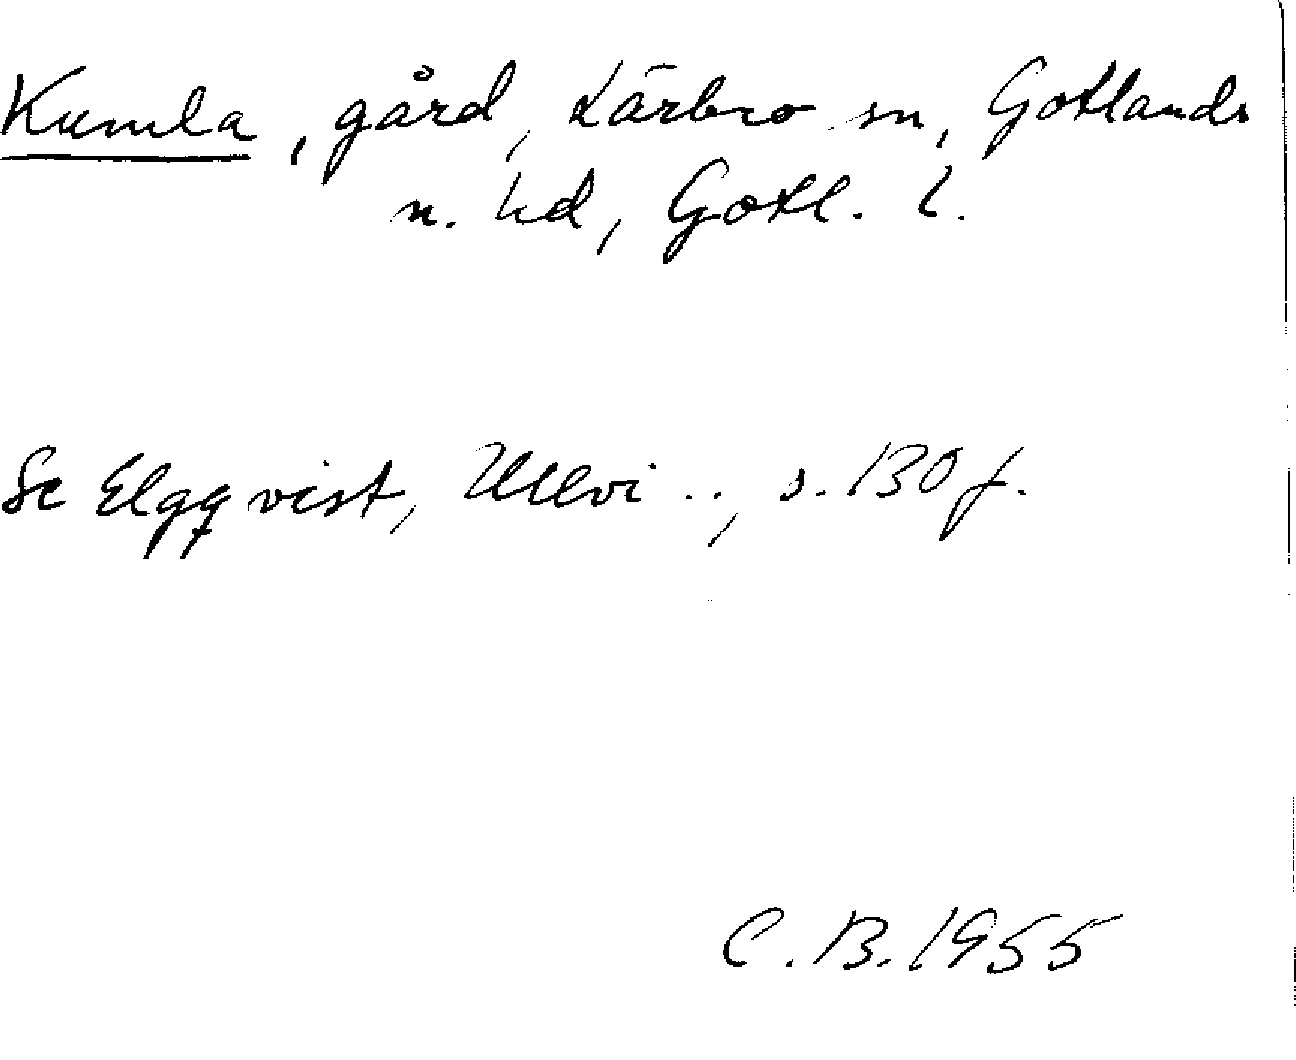 Kumla, gård, Lärbro sn, Gotlands
n. hd, Gotl. l.
Se Elgqvist, Ullvi .., s. 130 f.
C. B. 1955